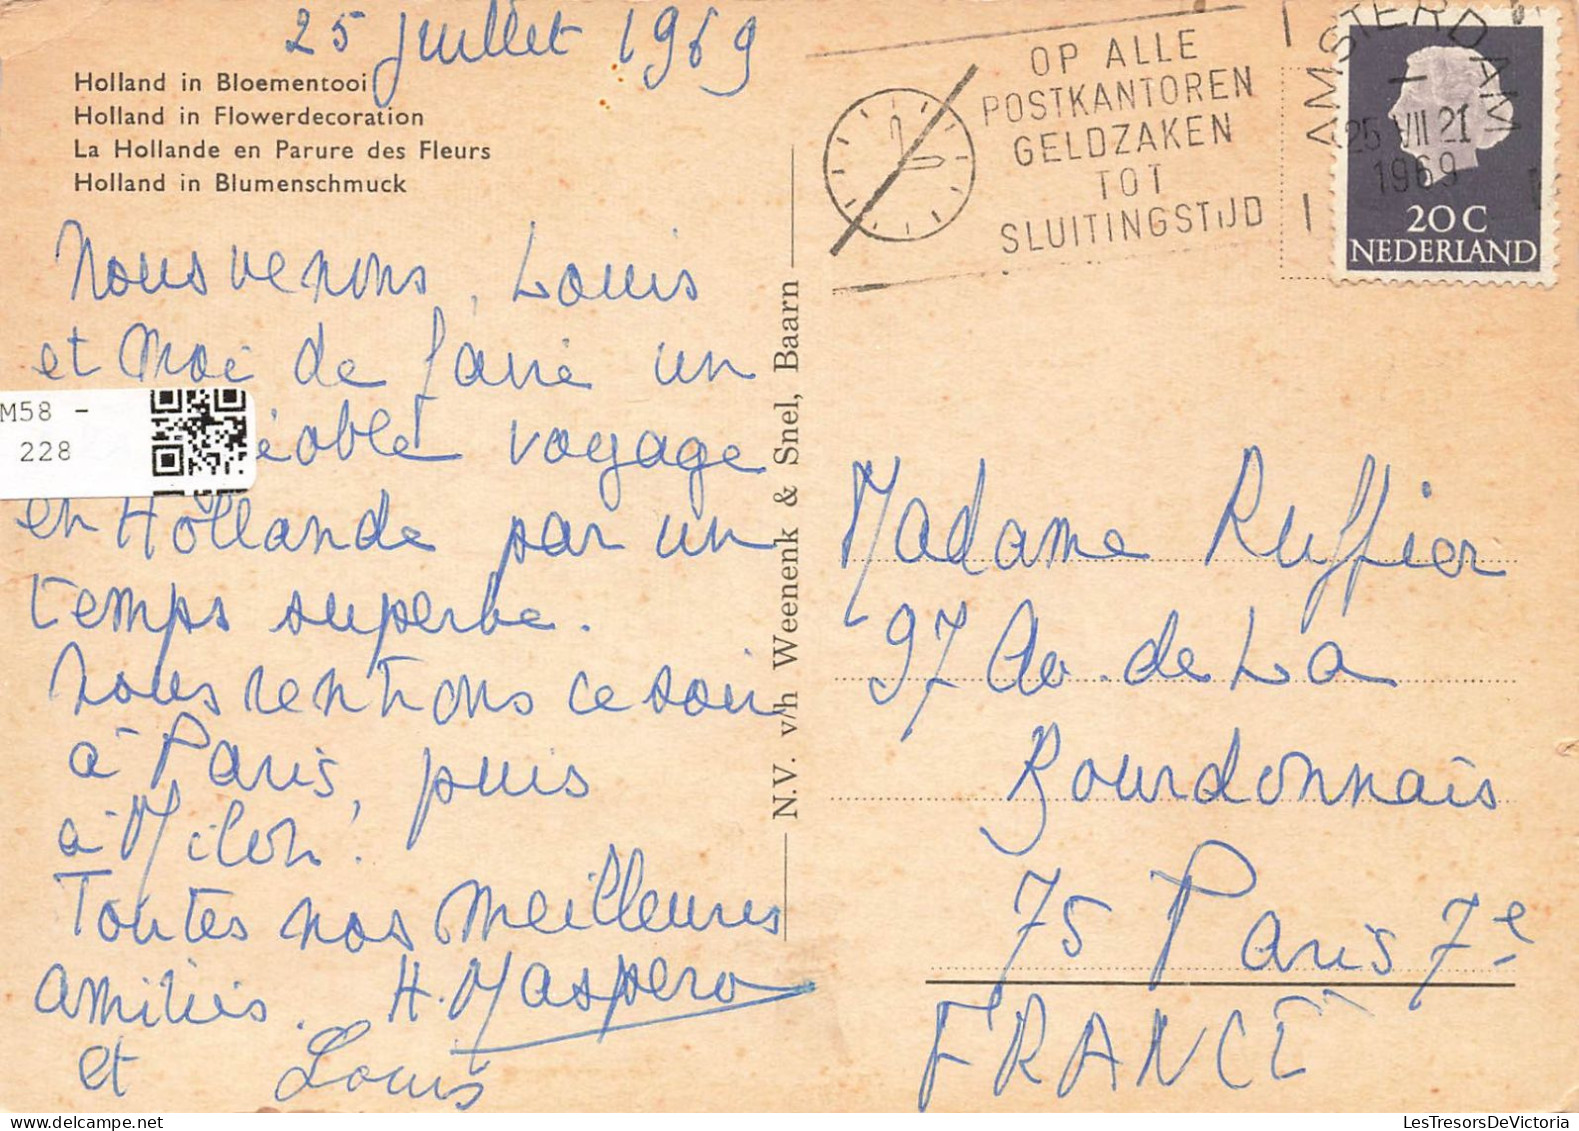 25 juillet 1969
Holland in Bloementooi
Holland in Flowerdecoration
La Hollande en Parure des Fleurs
Holland in Blumenschmuck
Nous venons, Louis
et moi de faire un
éable voyage
en Hollande par un
temps superbe.
Nous rentrons ce soir
à Paris, puis
à Milon!
Toutes nos meilleures
amitiés. H. Maspero
et Louis
M58 -
228
N.V. v/h Weenenk & Snel, Baarn
OP ALLE
POSTKANTOREN
GELDZAKEN
TOT
SLUITINGSTIJD
AMSTERDAM
25 VII 21
1969
20 C
NEDERLAND
Madame Ruffier
97 Av. de La
Bourdonnais
75 Paris 7e
FRANCE
LesTresorsDeVictoria.com